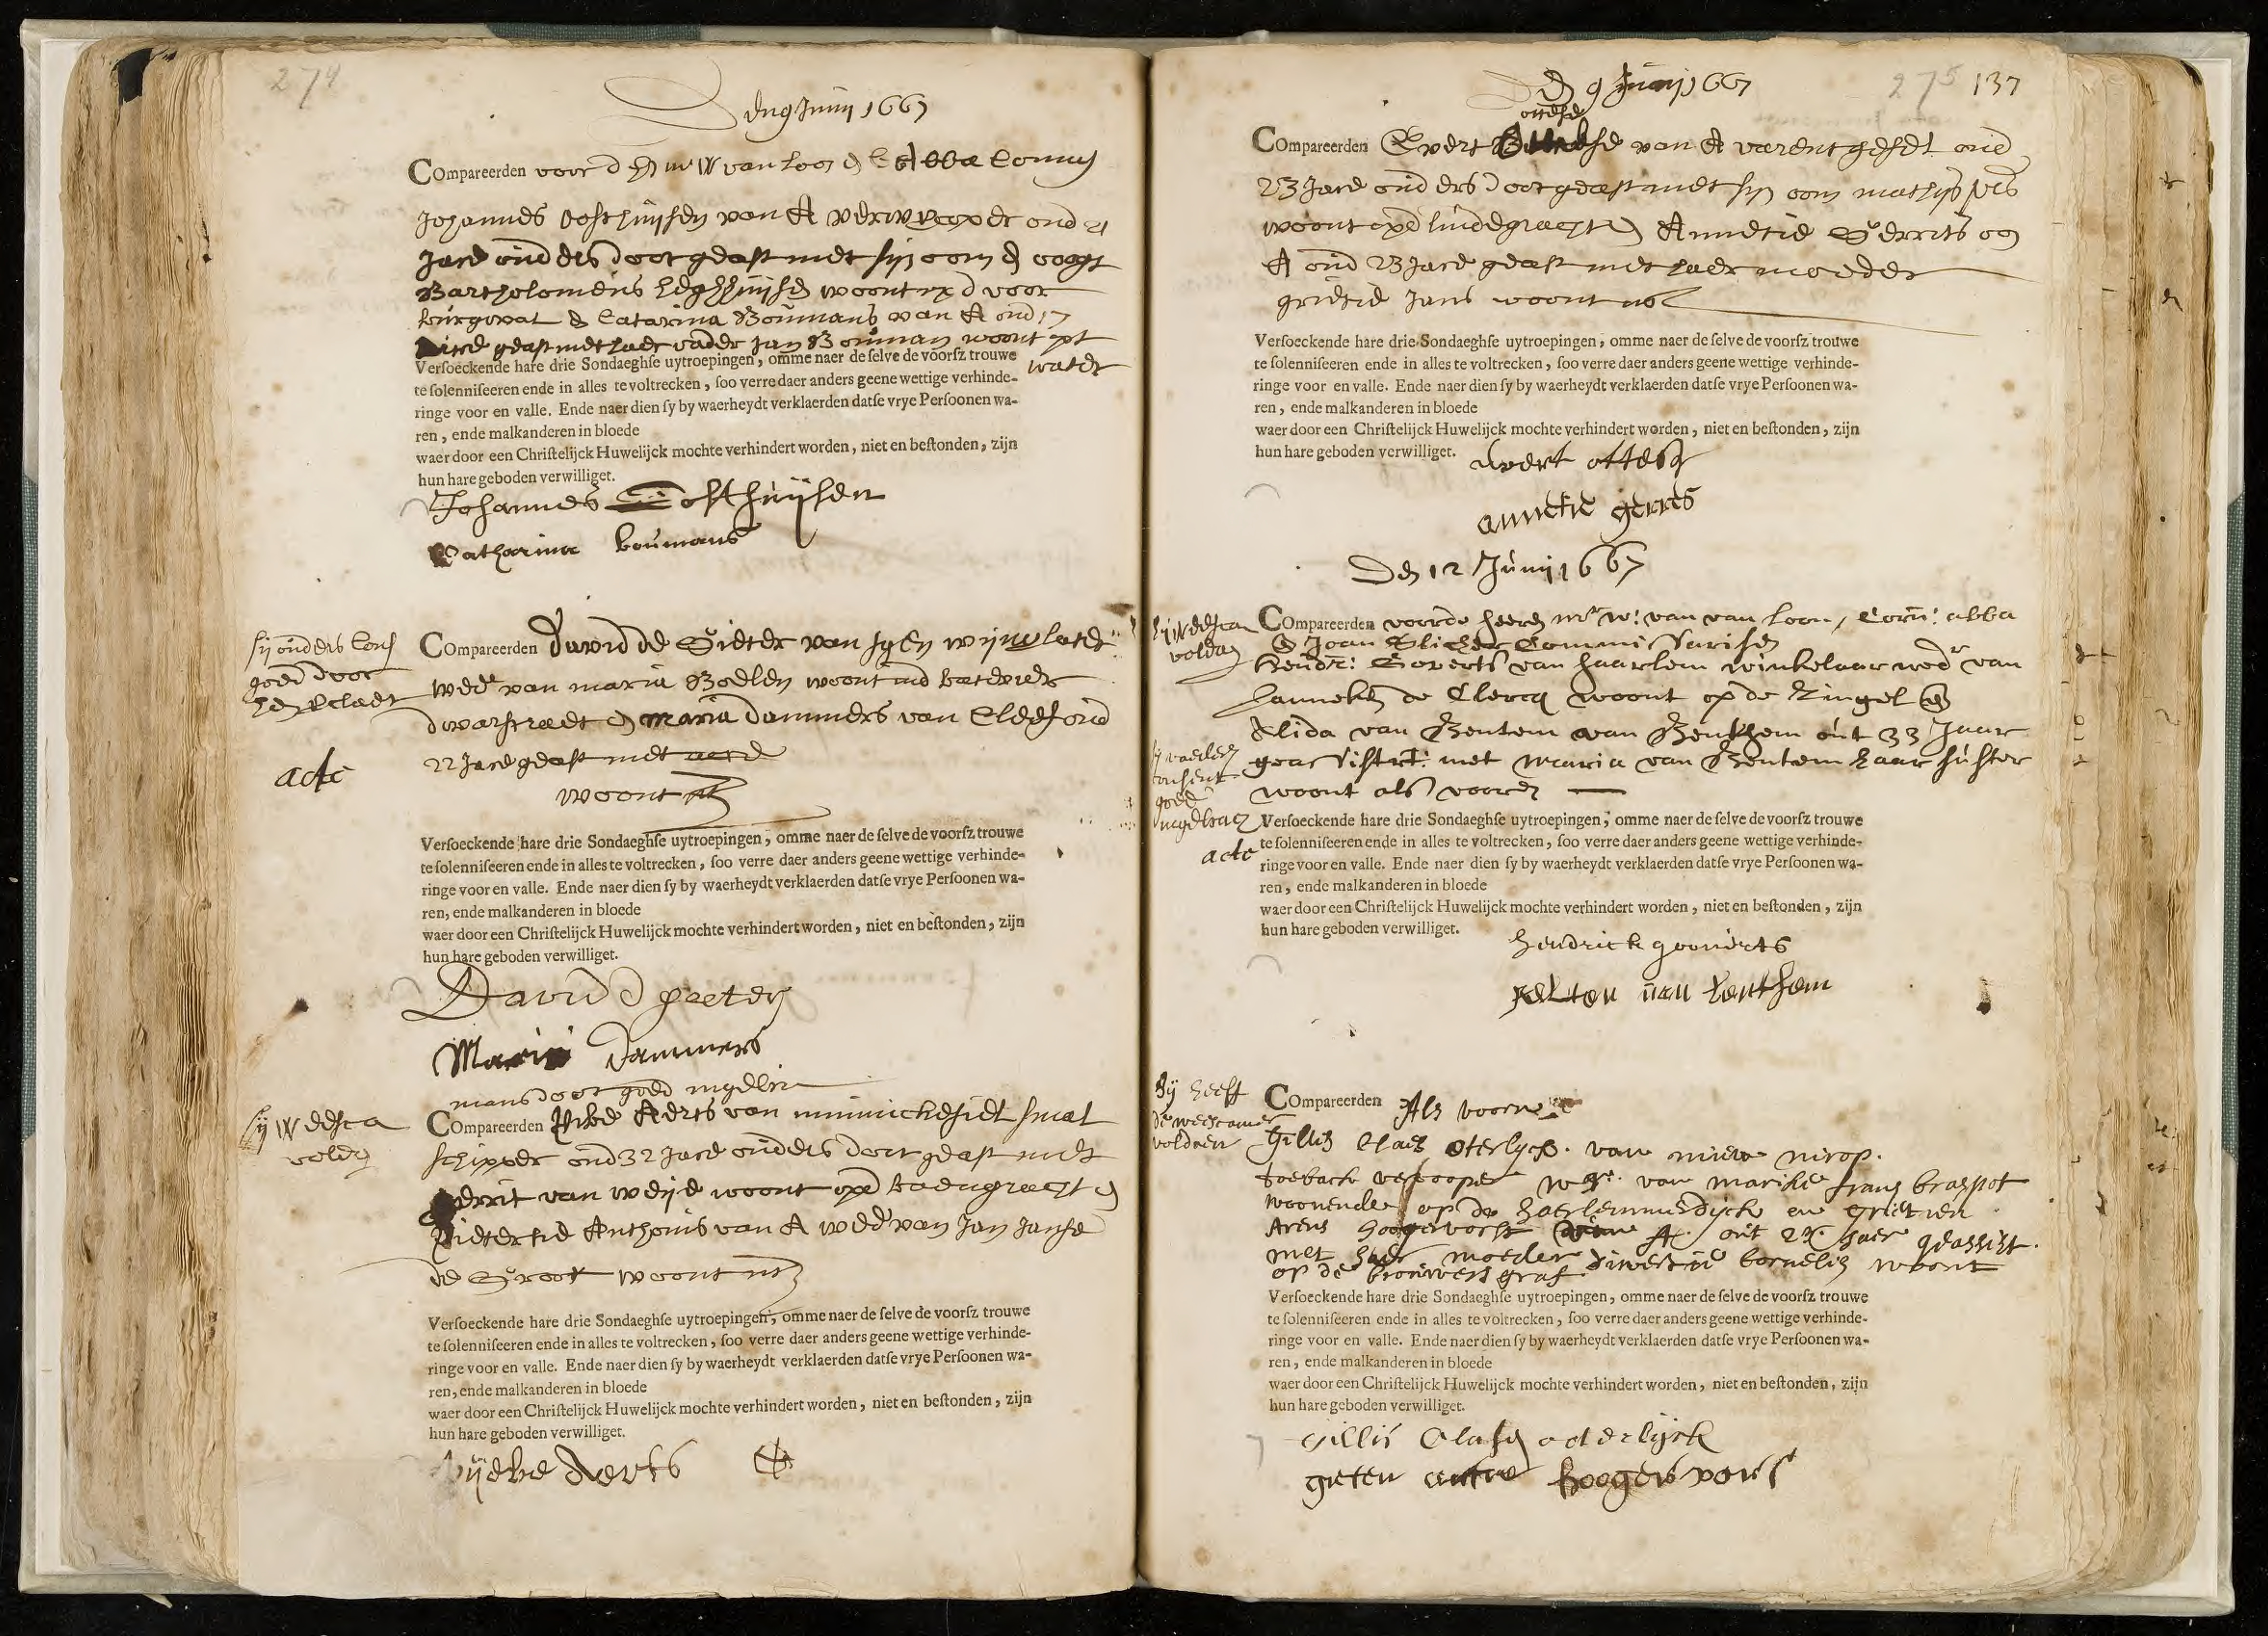 274
den 9 Junij 1667
Compareerden voor d hr mr W van Loon & C Abba Comms
Johannes Oosthuijsen van A verwer out 21
Jare ouders doot geast met sijn oom & voogt
Bartholomeus woont opd voor
burgwal & Catarina Boumans van A oud 17
Jare geast met haer vader Jan Bouman woont opt
water
Verſoeckende hare drie Sondaeghſe uytroepingen, omme naer de ſelve de voorſz trouwe
te ſolenniſeeren ende in alles te voltrecken, ſoo verre daer anders geene wettige verhinde-
ringe voor en valle. Ende naer dien ſy by waerheydt verklaerden datſe vrye Perſoonen wa-
ren, ende malkanderen in bloede
waer door een Chriſtelijck Huwelijck mochte verhindert worden, niet en beſtonden, zijn
hun hare geboden verwilliget.
Johannes Oosthuijsen
Catharina boumans
sij ouders cons
goed door
acte
Compareerden David de Pieter van wijn
wedr van Maria Boelen woont ind
dwarstraet & Maria Dammers van Cleef oud
22 Jare geast met
woont
Verſoeckende hare drie Sondaeghſe uytroepingen, omme naer de ſelve de voorſz trouwe
te ſolenniſeeren ende in alles te voltrecken, ſoo verre daer anders geene wettige verhinde-
ringe voor en valle. Ende naer dien ſy by waerheydt verklaerden datſe vrye Perſoonen wa-
ren, ende malkanderen in bloede
waer door een Chriſtelijck Huwelijck mochte verhindert worden, niet en beſtonden, zijn
hun hare geboden verwilliget.
David d peeters
Maria Dammers
mans doot goed ingebr
sij weesca
voldn
Compareerden Aerts van smal
schipper oud 32 Jare ouders doot geast met
Gerrit van weije woont opd Baengracht &
Pietertie Anthonis van A wede van Jan Janse
de Groot woont
Verſoeckende hare drie Sondaeghſe uytroepingen, omme naer de ſelve de voorſz trouwe
te ſolenniſeeren ende in alles te voltrecken, ſoo verre daer anders geene wettige verhinde-
ringe voor en valle. Ende naer dien ſy by waerheydt verklaerden datſe vrye Perſoonen wa-
ren, ende malkanderen in bloede
waer door een Chriſtelijck Huwelijck mochte verhindert worden, niet en beſtonden, zijn
hun hare geboden verwilliget.
Aerts
275 137
d 9 Junij 1667
ottese
Compareerden Evert van A varentgesel oud
23 Jare ouders doot geast met sijn oom mathijs
woont opd lindegracht & Annetie Gerrits van
A oud 23 Jare geast met haer moeder
grietie Jans woont
Verſoeckende hare drie Sondaeghſe uytroepingen, omme naer de ſelve de voorſz trouwe
te ſolenniſeeren ende in alles te voltrecken, ſoo verre daer anders geene wettige verhinde-
ringe voor en valle. Ende naer dien ſy by waerheydt verklaerden datſe vrye Perſoonen wa-
ren, ende malkanderen in bloede
waer door een Chriſtelijck Huwelijck mochte verhindert worden, niet en beſtonden, zijn
hun hare geboden verwilliget.
evert ottesz
annetie gerrets
Den 12 Junij 1667
hij weesca
voldaen
Compareerden voorde heeren mr W: van van Loon, Corn: abba
& Joan Blicher Commissarisen
Hendr: Goverts van Haarlem winkelaar wedr van
Janneken de Clercq woont op de Cingel &
Alida van Bentem van Benthem out 33 Jaar
geassisteert: met Maria van Bentem haar suster
woont als vooren
sij vaders
consent
goed
ingebrac
acte
Verſoeckende hare drie Sondaeghſe uytroepingen, omme naer de ſelve de voorſz trouwe
te ſolenniſeeren ende in alles te voltrecken, ſoo verre daer anders geene wettige verhinde-
ringe voor en valle. Ende naer dien ſy by waerheydt verklaerden datſe vrye Perſoonen wa-
ren, ende malkanderen in bloede
waer door een Chriſtelijck Huwelijck mochte verhindert worden, niet en beſtonden, zijn
hun hare geboden verwilliget.
hendrick goverts
van benthem
Hij heeft
de weescamer
voldaen
Compareerden Als vooren
Gillis Claes oterlyck. van nieuw nirop.
toeback vercooper wedr. van marike frans braspot
woonende op de haerlemmerdijck en grietien
Arens hoogervorst van A. out 28. Jaer geassist.
met haer moeder diwertie cornelis woont
op de brouwers graf
Verſoeckende hare drie Sondaeghſe uytroepingen, omme naer de ſelve de voorſz trouwe
te ſolenniſeeren ende in alles te voltrecken, ſoo verre daer anders geene wettige verhinde-
ringe voor en valle. Ende naer dien ſy by waerheydt verklaerden datſe vrye Perſoonen wa-
ren, ende malkanderen in bloede
waer door een Chriſtelijck Huwelijck mochte verhindert worden, niet en beſtonden, zijn
hun hare geboden verwilliget.
Gillis Clasen oterlijck
grieten hoogervorst